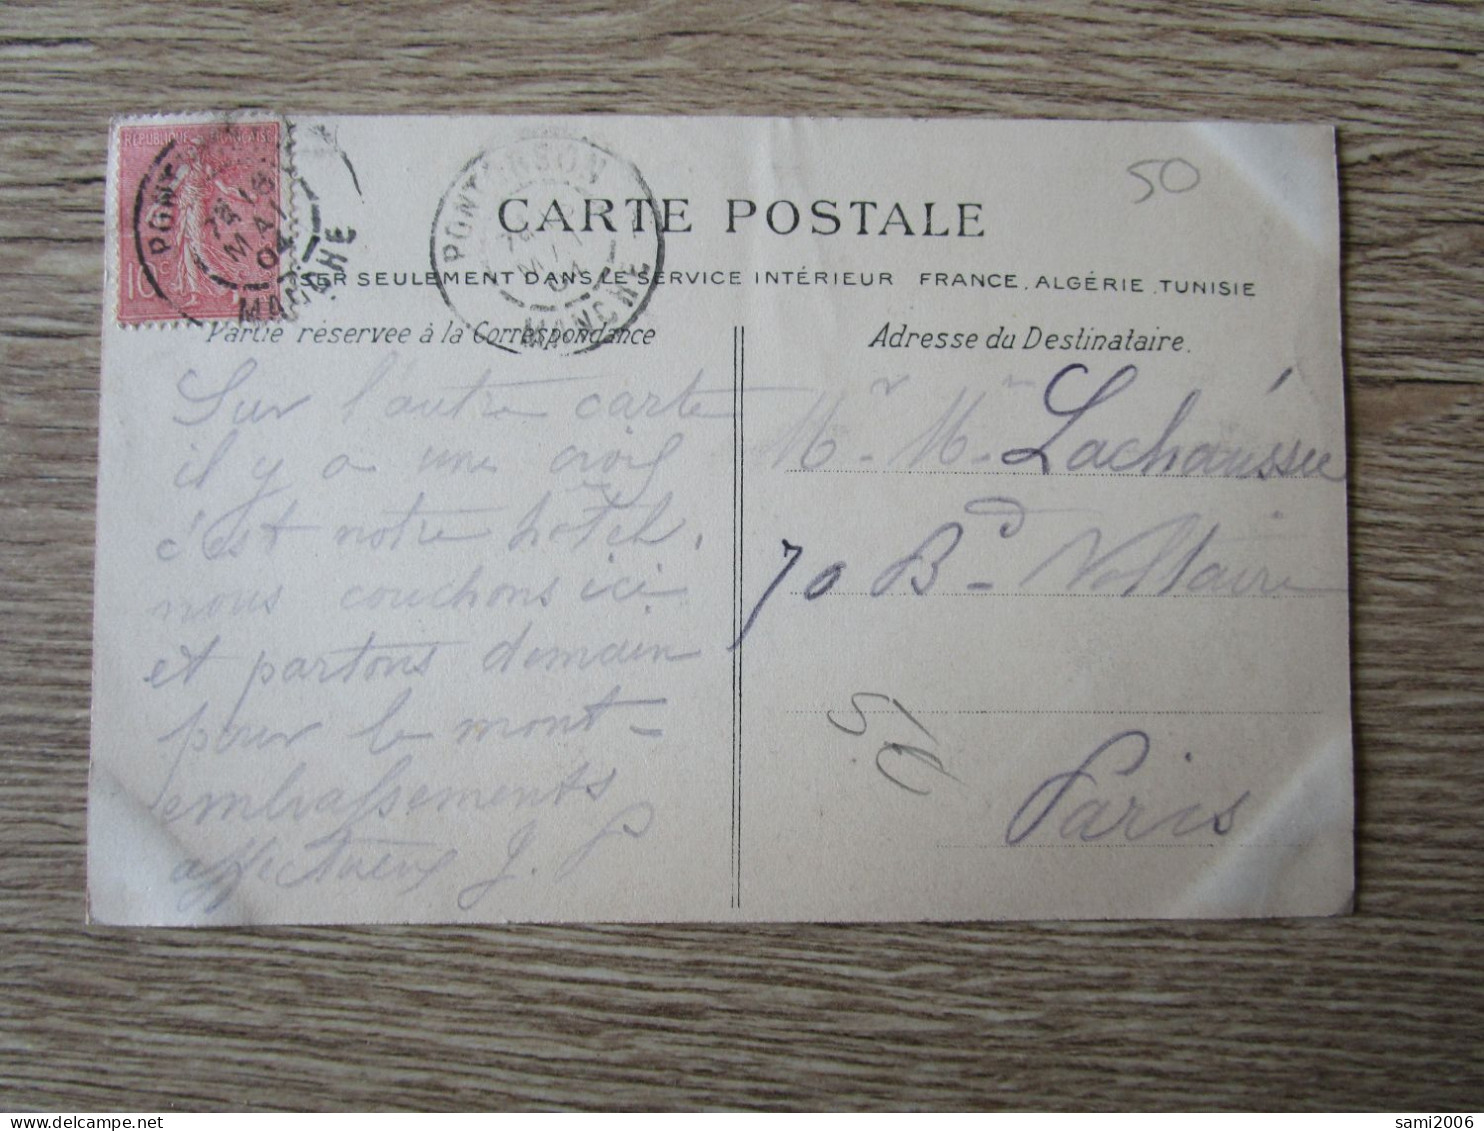 RÉPUBLIQUE FRANÇAISE
10 c
PONTORSON
MAI
04
MANCHE
PONTORSON
MANCHE
50
CARTE POSTALE
SER SEULEMENT DANS LE SERVICE INTÉRIEUR FRANCE, ALGÉRIE, TUNISIE
Partie réservée à la Correspondance
Adresse du Destinataire.
Sur l'autre carte
il y a une croix
c'est notre hôtel.
nous couchons ici
et partons demain
pour le mont -
embrassements
affectueux J. P
Mr. Mm. Lachaussée
70 Bd. Voltaire
Paris
sami2006